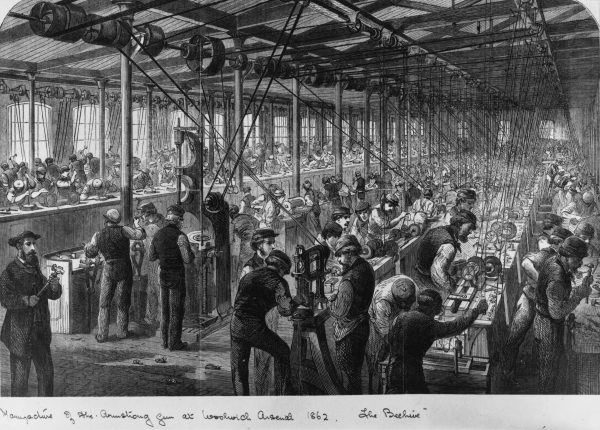 Manufacture of the Armstrong gun at Woolwich Arsenal 1862. "The Beehive"